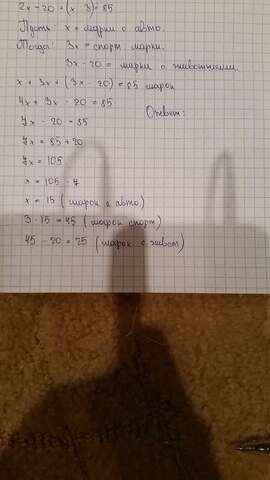 2x - 20 + (x · 3) = 85
Пусть x = марки о авто.
Тогда: 3x = спорт. марки.
3x - 20 = марки о животными
x + 3x + (3x - 20) = 85 марок
4x + 3x - 20 = 85
Ответ:
7x - 20 = 85
7x = 85 + 20
7x = 105
x = 105 : 7
x = 15 (марок о авто.)
3 · 15 = 45 (марок спорт)
45 - 20 = 25 (марок о живот)